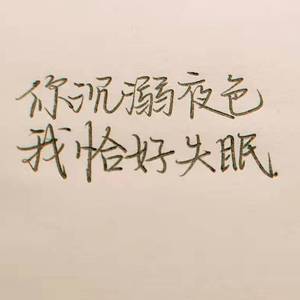 你沉溺夜色
我恰好失眠.